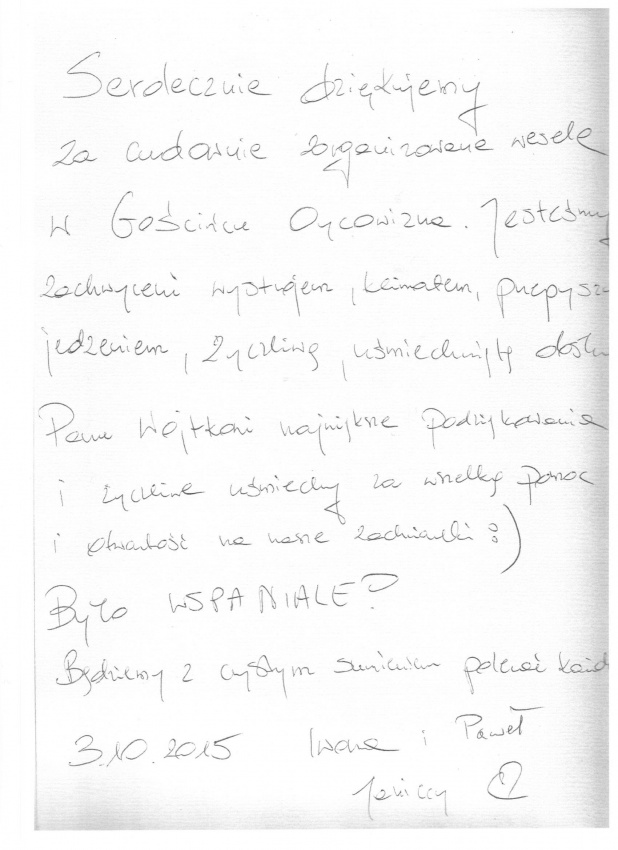 Serdecznie dziękujemy
za cudownie zorganizowane wesele
w Gościńcu Oycowizna. Jesteśmy
zachwyceni wystrojem, klimatem, przepysz
jedzeniem, życzliwą, uśmiechniętą obsłu
Panu Wojtkowi największe podziękowania
i życzliwe uśmiechy za wszelką pomoc
i otwartość na nasze zachcianki :)
Było WSPANIALE!
Będziemy z czystym sumieniem polecać każd
3.10.2015 Iwona i Paweł